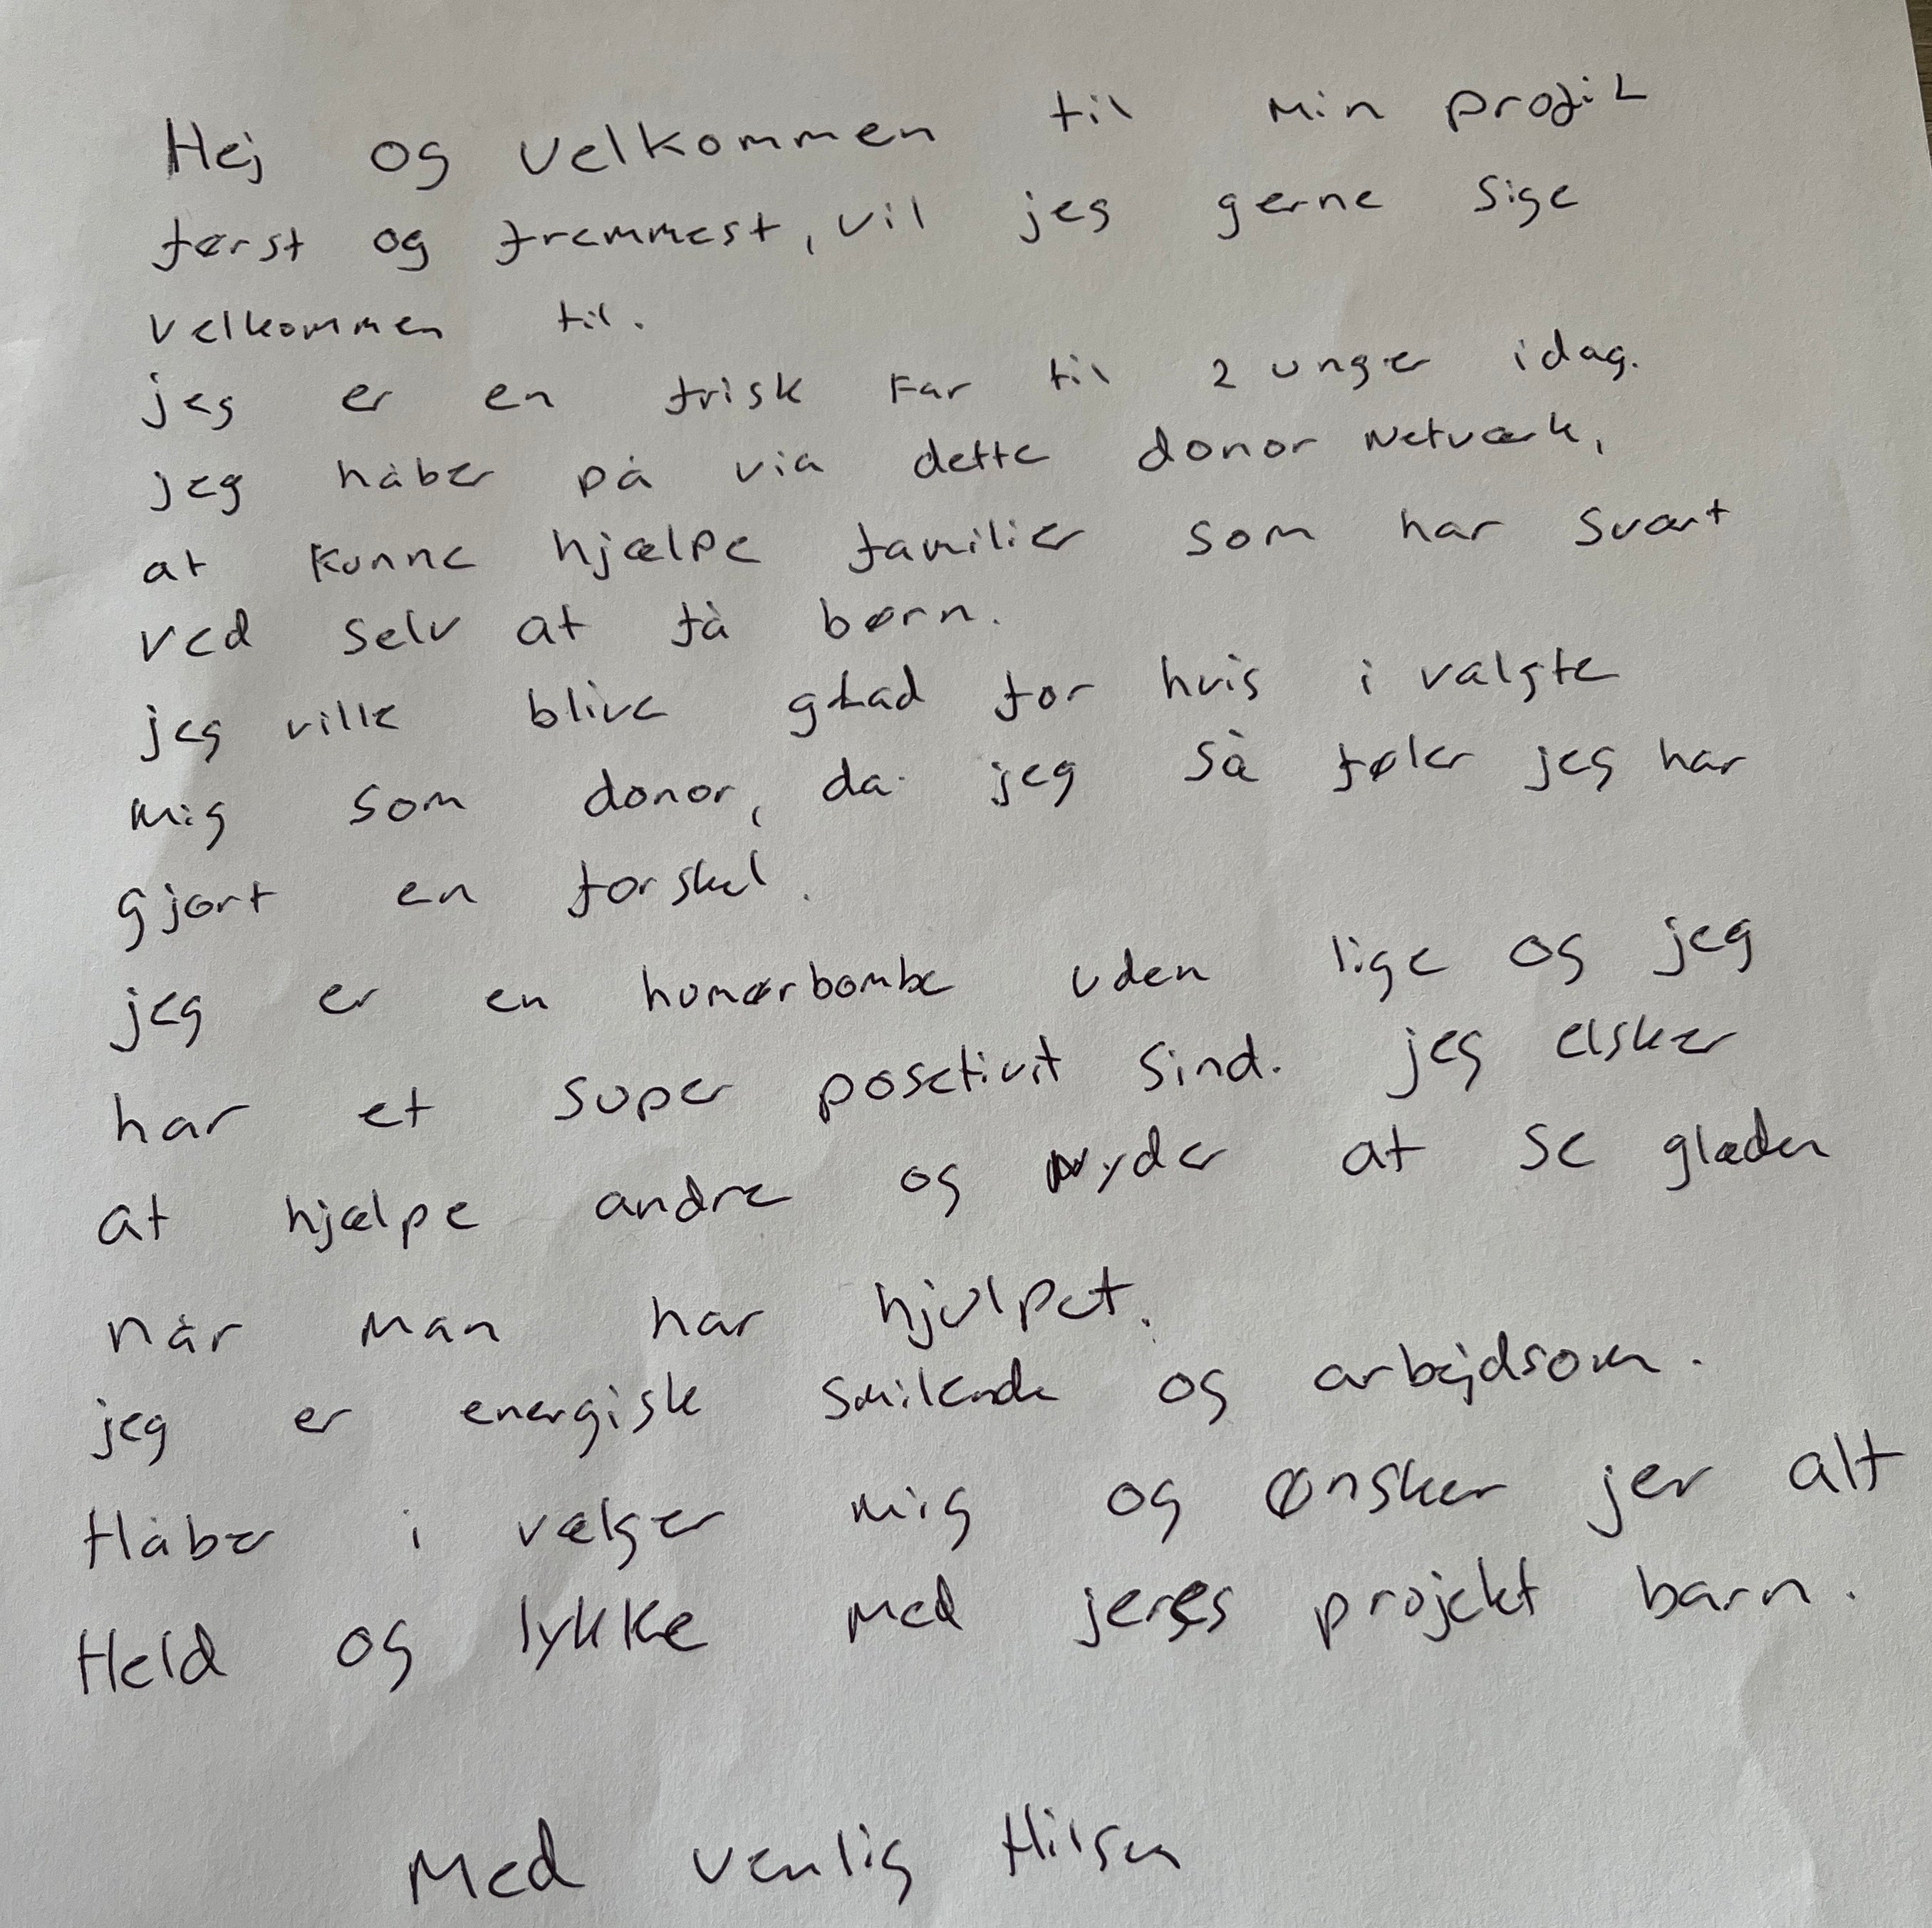 Hej og velkommen til min profil
først og fremmest, vil jeg gerne sige
velkommen til.
jeg er en frisk Far til 2 unger idag.
jeg håber på via dette donor Netværk,
at kunne hjælpe familier som har svært
ved selv at få børn.
jeg ville blive glad for hvis i valgte
mig som donor, da jeg så føler jeg har
gjort en forskel.
jeg er en humørbombe uden lige og jeg
har et super posetivit sind. jeg elsker
at hjælpe andre og nyder at se glæden
når man har hjulpet.
jeg er energisk smilende og arbejdsom.
Håber i vælger mig og ønsker jer alt
Held og lykke med jeres projekt barn.
Med venlig Hilsen